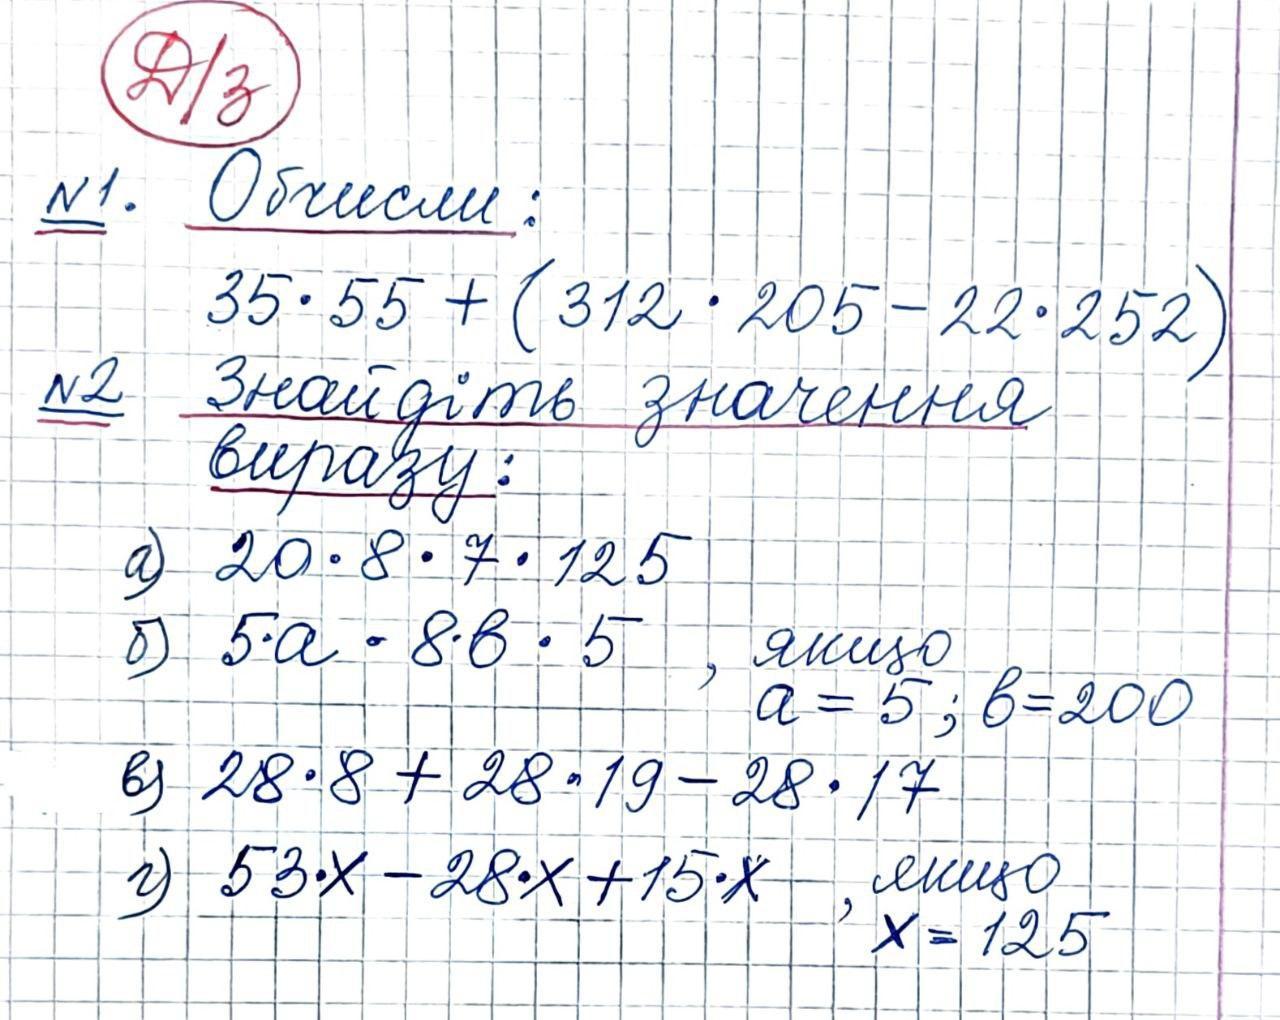 Д/з
№1. Обчисли:
35·55 + (312·205 - 22·252)
№2 Знайдіть значення
виразу:
а) 20·8·7·125
б) 5·а·8·в·5, якщо
а = 5; в = 200
в) 28·8 + 28·19 - 28·17
г) 53·х - 28·х + 15·х, якщо
х = 125